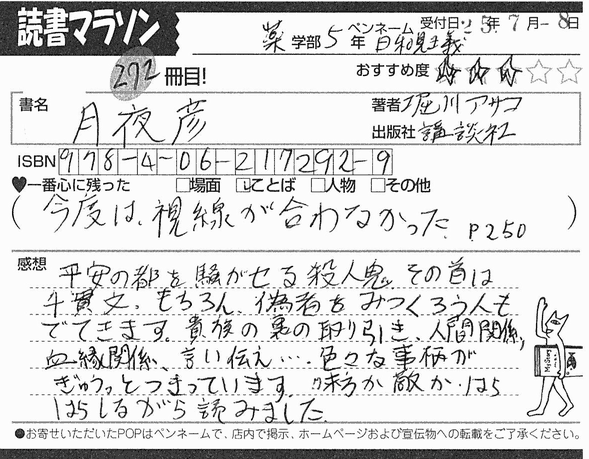 読書マラソン
受付日 '25年 7月 8日
薬 学部 5年 ペンネーム 日和見主義
272 冊目!
おすすめ度 ★★★☆☆
書名 月夜彦
著者 堀川アサコ
出版社 講談社
ISBN 978-4-06-217292-9
♥一番心に残った □場面 ☑ことば □人物 □その他
(今度は、視線が合わなかった。 P.250)
感想 平安の都を騒がせる殺人鬼。その首は
千貫文。もちろん、偽者をみつくろう人も
でてきます。貴族の裏の取り引き、人間関係、
血縁関係、言い伝え…。色々な事柄が
ぎゅうっとつまっています。味方か敵か、はら
はらしながら読みました。
●お寄せいただいたPOPはペンネームで、店内で掲示、ホームページおよび宣伝物への転載をご了承ください。